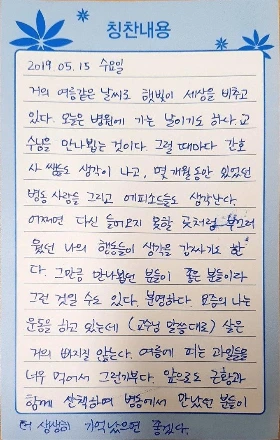 칭찬내용
2019 05. 15 수요일
거의 여름같은 날씨로 햇빛이 세상을 비추고
있다. 오늘은 병원에 가는 날이기도 하다. 교
수님을 만나뵙는 것이다. 그럴 때마다 간호
사 쌤들도 생각이 나고, 몇 개월 동안 있었던
병동 사람들 그리고 에피소드들도 생각난다.
어쩌면 다신 들어오지 못할 곳처럼 부끄러
웠던 나의 행동들이 생각을 감싸기도 한
다. 그만큼 만나뵙던 분들이 좋은 분들이라
그런 것일 수도 있다. 분명하다. 요즘의 나는
운동을 하고 있는데 (교수님 말씀대로) 살은
거의 빠지질 않는다. 여름에 피는 과일들을
너무 먹어서 그런가부다. 앞으로도 건강과
함께 산책하며 병동에서 만났던 분들이
더 생생히 기억났으면 좋겠다.